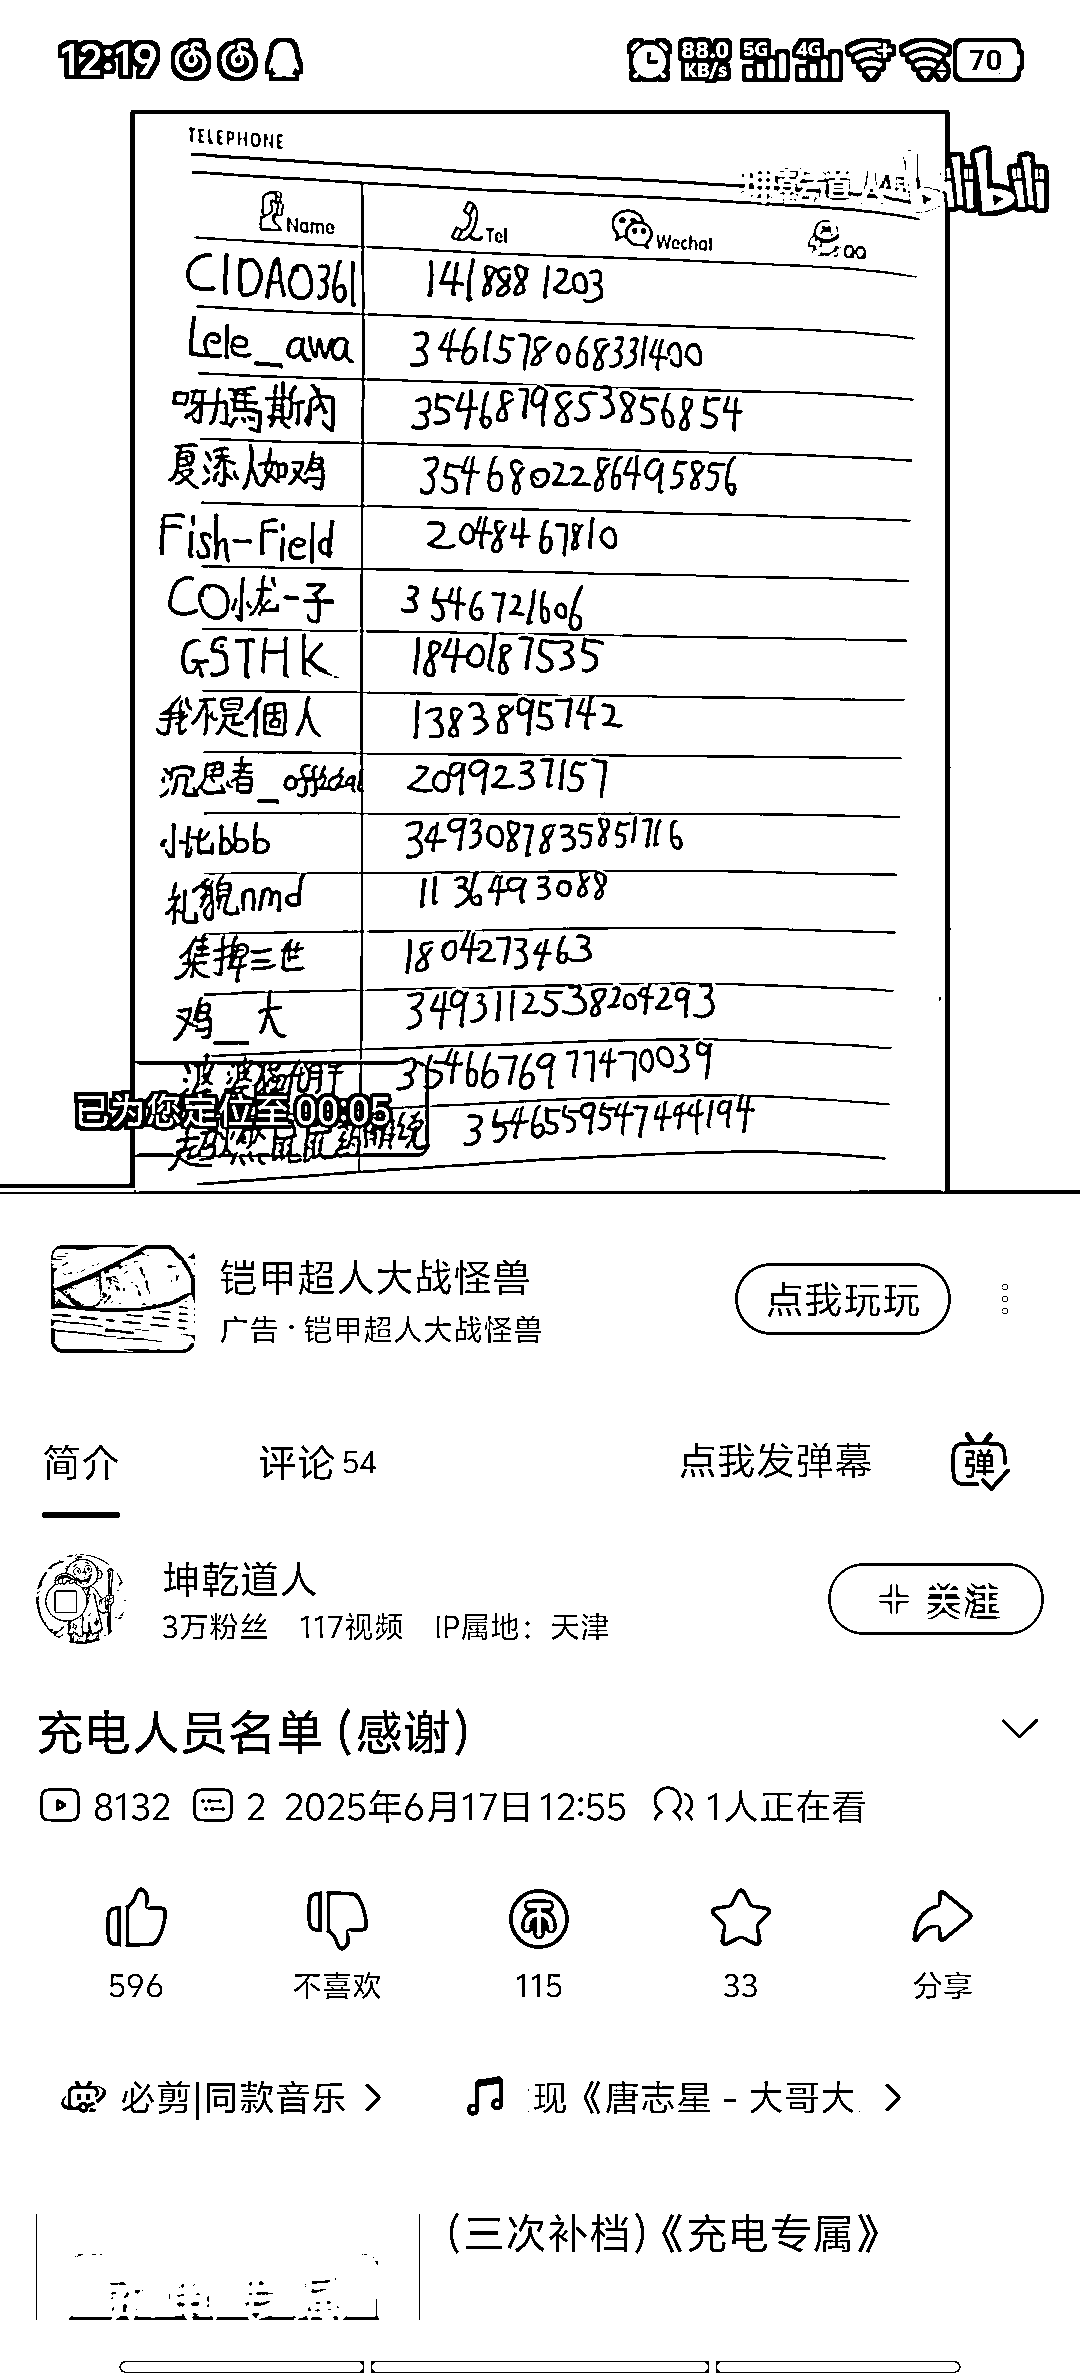 12:19 88.0 KB/s 5G 4G 70
TELEPHONE
坤乾道人 bilibili
Name Tel Wechat QQ
CIDAO361 1418881203
Lele_awa 3461578068331400
呀勏馬斯內 3546879853856854
夏添人如鸡 3546802286495856
Fish-Field 2048467810
CO小龙一子 3546721606
GSTHK 1840187535
我不是個人 1383895742
沉思者_official 2099237157
小比bbb 3493087835851716
礼貌nmd 1136493088
集掉三世 1804273463
鸡__大 3493112538204293
婆婆 3546676977470039
已为您定位至00:05
3546559547444194
铠甲超人大战怪兽
广告·铠甲超人大战怪兽
点我玩玩
简介 评论 54 点我发弹幕 弹
坤乾道人
3万粉丝 117视频 IP属地：天津
+ 关注
充电人员名单（感谢）
8132 2 2025年6月17日12:55 1人正在看
596 不喜欢 115 33 分享
必剪|同款音乐 现《唐志星 - 大哥大
（三次补档）《充电专属》
充电专属